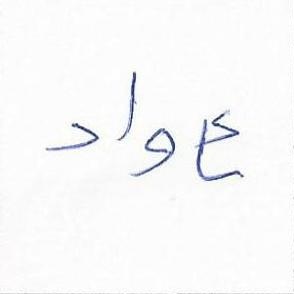 ع واد